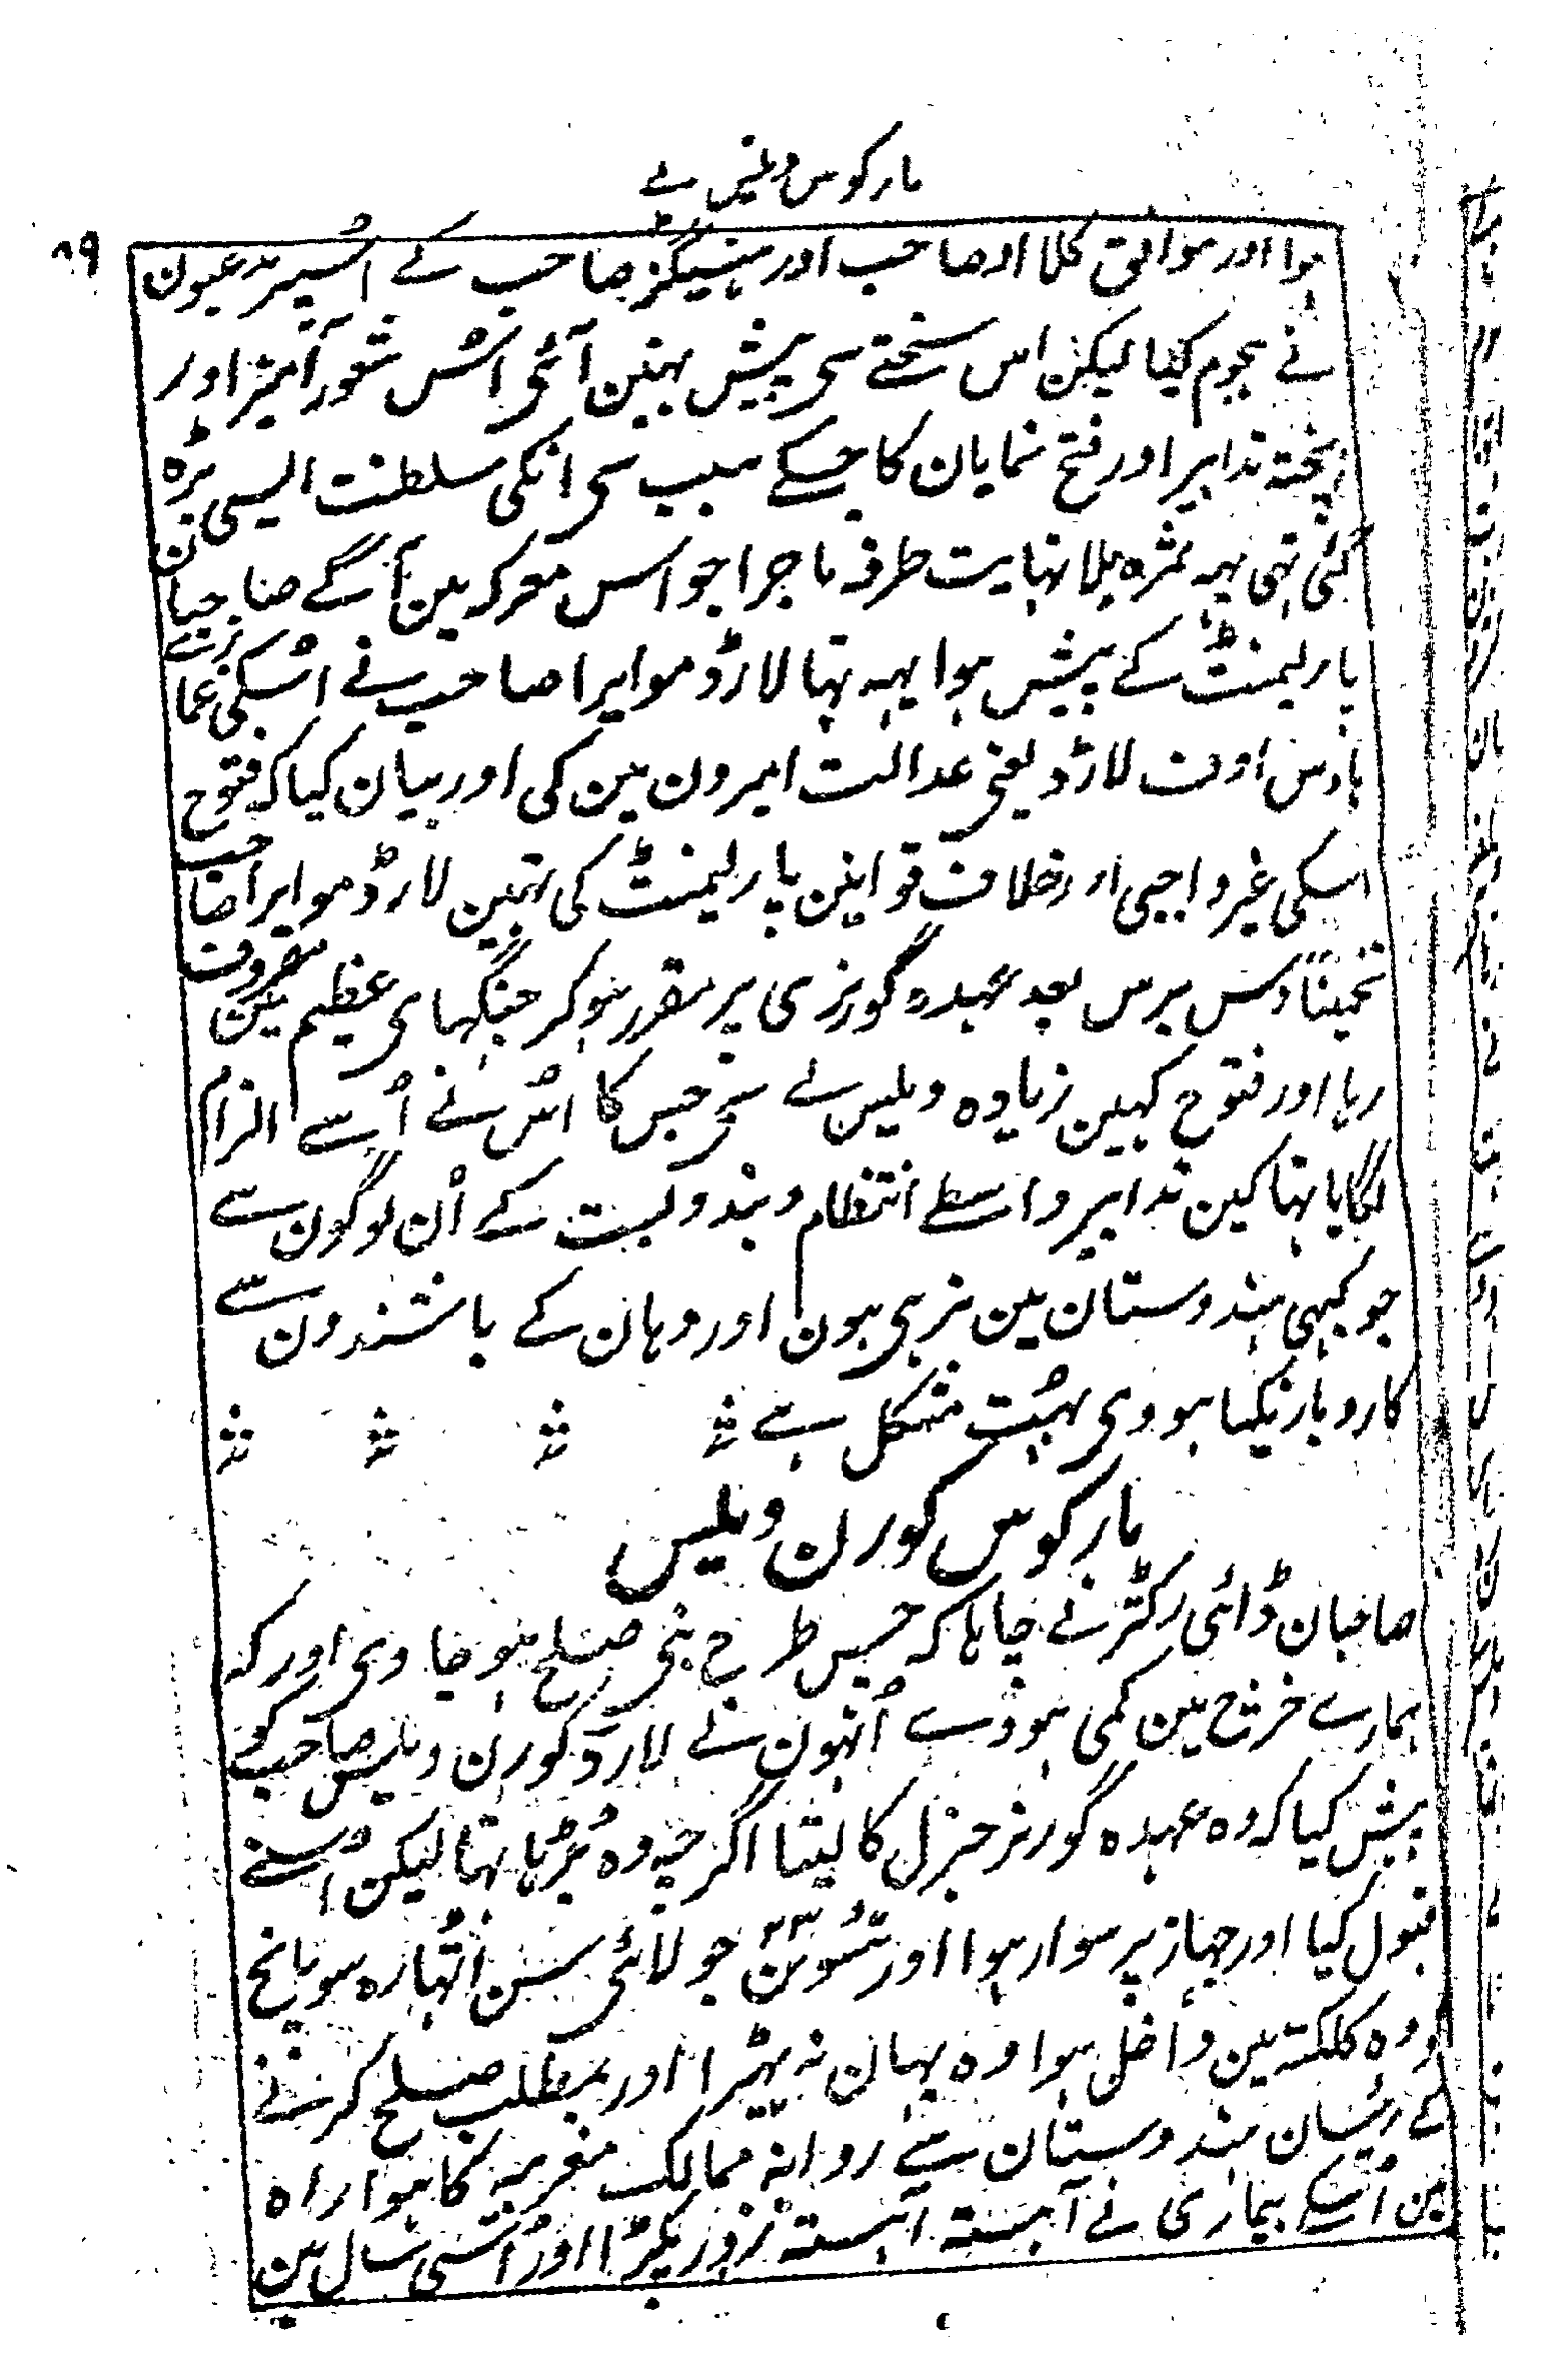 مارکوس ویلس لے
۸۹
ہوا اور موافق کلااو صاحب اور ہنسیٹگز صاحب کے اُسپر مدعیون
نے ہجوم کیا لیکن اس سختے سی پیش نہین آئی اس شور آمیز اور
پختہ تدابیر اور فتح نمایان کا جسکے سبب سی انکی سلطنت ایسی بڑہ
گئی تہی یہہ ثمرہ ملا نہایت طرفہ ماجرا جو اس معرکہ مین آگے صاحبان
پارلیمنٹ کے پیش ہوا یہہ تہا لارڈ موایرا صاحب نے اُسکی غمازے
ہاوس اوف لارڈ یعنی عدالت امیرون مین کی اور بیان کیا کہ فتوح
اسکی غیر واجبی اور خلاف قوانین پارلیمنٹ کی تہین لارڈ موایرا صاحب
تخمیناً دس برس بعد عہدہ گورنری پر مقرر ہوکر جنگہای عظیم مین مصروف
رہا اور فتوح کہین زیادہ ویلس لے سی جس کا اُس نے اُسے الزام
لگایا تہا کین تدابیر واسطے انتظام و بندوبست کے اُن لوگون سے
جو کبہی ہندوستان مین نرہی ہون اور وہان کے باشندون سے
کاروبار نکیا ہووی بہت مشکل ہے
مارکوس کورن ویلیس
صاحبان ڈائی رکٹر نے چاہا کہ جس طرح بنی صلح ہو جاوی اور کہ
ہمارے خرچ مین کمی ہووے اُنہون نے لارڈ کورن ویلس صاحب کو
پیش کیا کہ وہ عہدہ گورنر جنرل کا لیتا اگرچہ وہ بُڑہا تہا لیکن اُسنے
قبول کیا اور جہاز پر سوار ہوا اور تئسوین ۲۳ جولائی سن اٹہارہ سو پانچ
کو وہ کلکتہ مین داخل ہوا وہ یہان نہ ٹہیرا اور بمطلب صلح کرنے
کے رئیسان ہندوستان سے روانہ ممالک مغربیہ کا ہوا راہ
مین اُسکے بیماری نے آہستہ آہستہ زور پکڑا اور اُسی سال مین